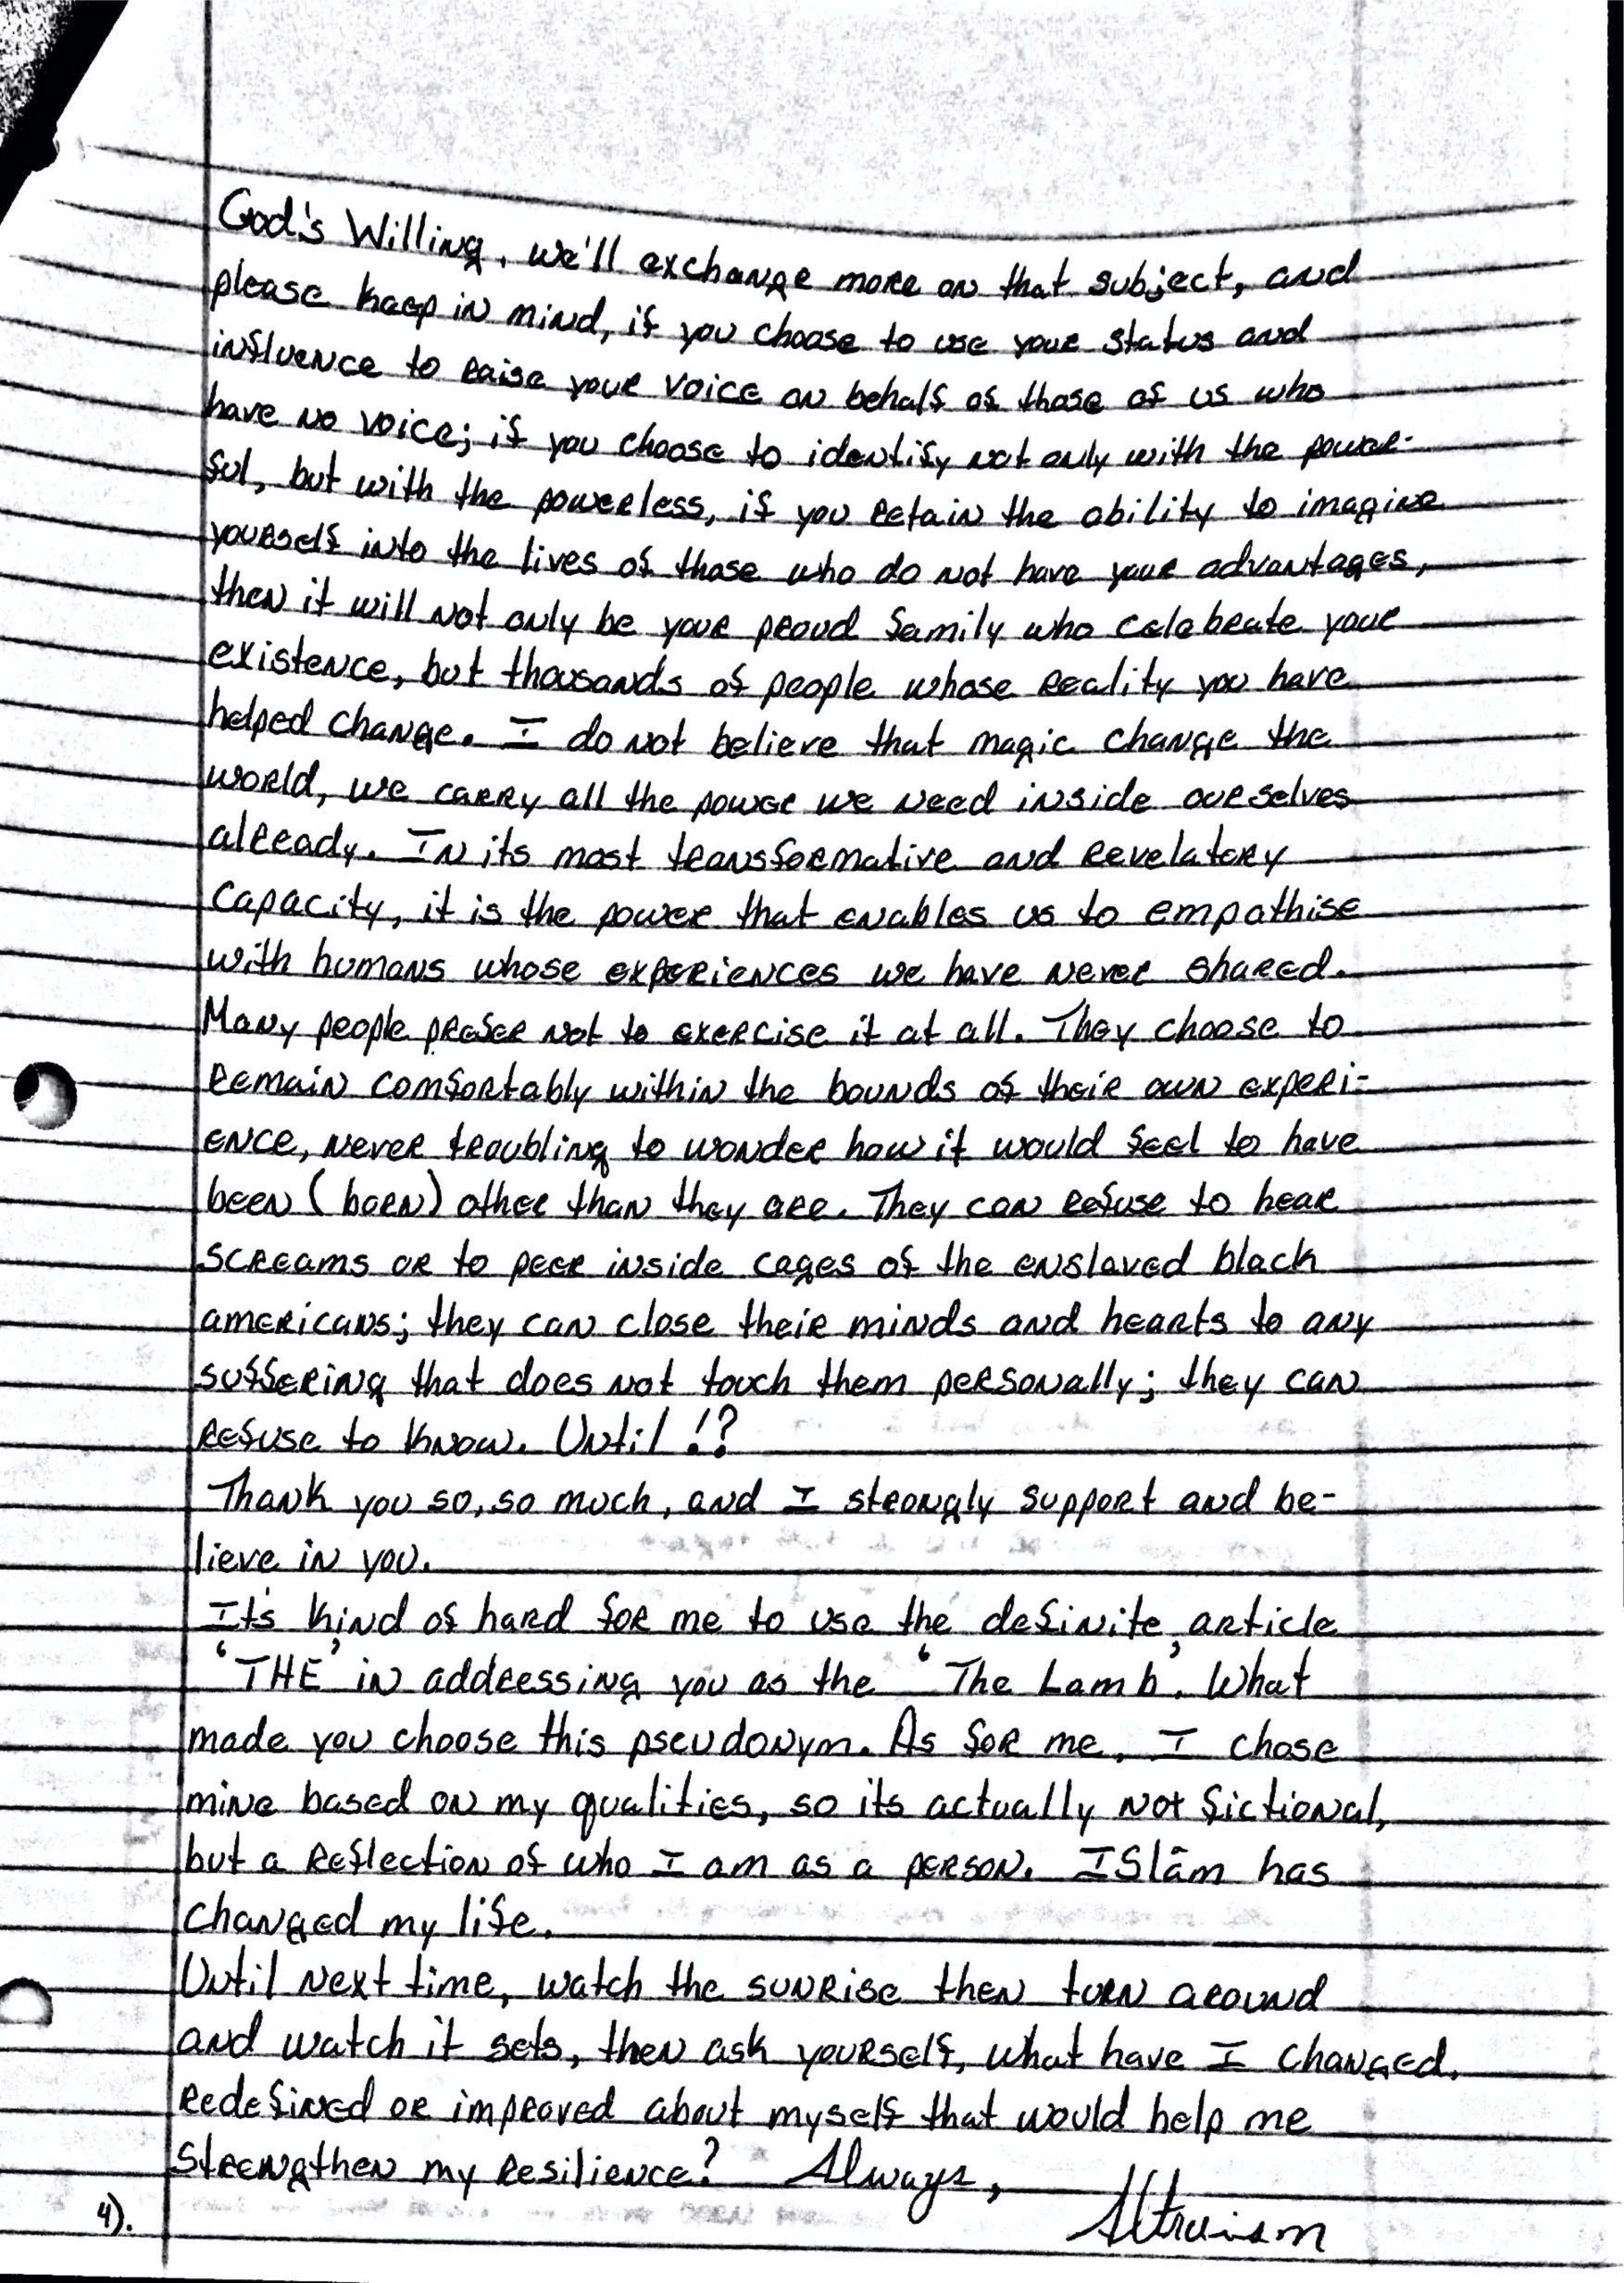 God's Willing, we'll exchange more on that subject, and
please keep in mind, if you choose to use your status and
influence to raise your voice on behalf of those of us who
have no voice; if you choose to identify not only with the power-
ful, but with the powerless, if you retain the ability to imagine
yourself into the lives of those who do not have your advantages,
then it will not only be your proud family who celebrate your
existence, but thousands of people whose reality you have
helped change. I do not believe that magic change the
world, we carry all the power we need inside ourselves
already. In its most transformative and revelatory
capacity, it is the power that enables us to empathise
with humans whose experiences we have never shared.
Many people prefer not to exercise it at all. They choose to
remain comfortably within the bounds of their own experi-
ence, never troubling to wonder how it would feel to have
been (born) other than they are. They can refuse to hear
screams or to peer inside cages of the enslaved black
americans; they can close their minds and hearts to any
suffering that does not touch them personally; they can
refuse to know. Until !?
Thank you so, so much, and I strongly support and be-
lieve in you.
It's kind of hard for me to use the definite, article
'THE' in addressing you as the 'The Lamb'. What
made you choose this pseudonym. As for me, I chose
mine based on my qualities, so its actually not fictional,
but a reflection of who I am as a person. ISlām has
changed my life.
Until next time, watch the sunrise then turn around
and watch it sets, then ask yourself, what have I changed,
redefined or improved about myself that would help me
strengthen my resilience? Always,
Altruism
4).